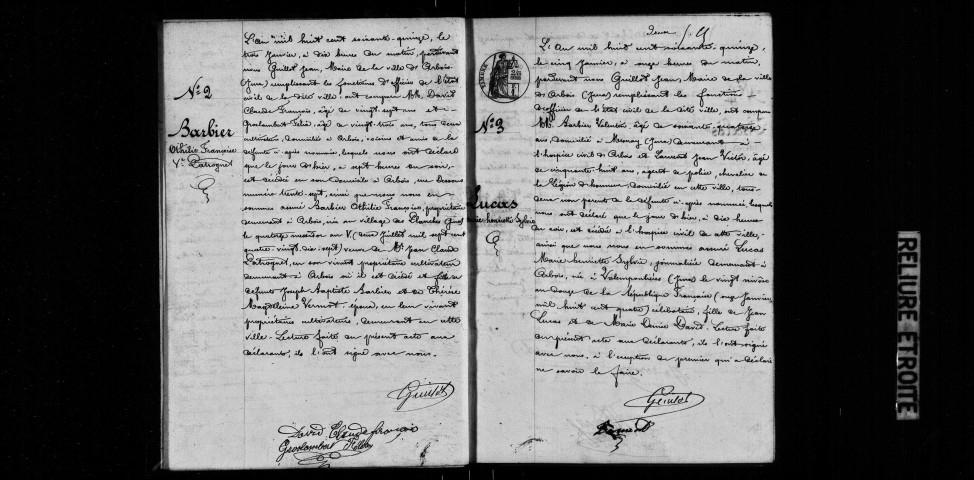 N.o 2
Barbier
Othilie Françoise
Ve Patrognet
L'An mil huit cent soixante-quinze, le
trois Janvier, à dix heures du matin, pardevant
nous Guillot Jean, Maire de la ville d'Arbois
(Jura) remplissant les fonctions d'officier de l'état
civil de la dite ville, ont comparu MM. David
Claude François, âgé de vingt-sept ans et
Groslambert Félix, âgé de vingt-trois ans, tous deux
cultivateurs, domiciliés à Arbois, voisins et amis de la
défunte ci-après nommée, lesquels nous ont déclaré
que le jour d'hier, à sept heures du soir,
est décédée en son domicile à Arbois, rue Dessous
numéro trente-sept, ainsi que nous nous en
sommes assuré Barbier Othilie Françoise, propriétaire
demeurant à Arbois, née au village des Planches (Jura)
le quatorze messidor an V (deux Juillet mil sept cent
quatre-vingt-dix-sept) veuve de Mr Jean Claude
Patrognet, en son vivant propriétaire cultivateur
demeurant à Arbois où il est décédé et fille de
défunts Joseph Baptiste Barbier et de Thérèse
Magdeleine Vermot, époux, en leur vivant
propriétaires cultivateurs, demeurant en cette
ville. Lecture faite du présent acte aux
déclarants, ils l'ont signé avec nous.
Guillot
David Claude françois
Groslambert Félix
deux
N.o 3
Lucas
Marie henriette Sylvie
L'An mil huit cent soixante-quinze,
le cinq Janvier, à onze heures du matin,
pardevant nous Guillot Jean, Maire de la ville
d'Arbois (Jura) remplissant les fonctions
d'officier de l'état civil de la dite ville, ont comparu
MM. Barbier Valentin, âgé de soixante
ans, domicilié à Mesnay (Jura) demeurant à
l'hospice civil de Arbois et Jean Victor, âgé
de cinquante-huit ans, agent de police, chevalier de
la légion d'honneur, domicilié en cette ville, tous
deux non parents de la défunte ci-après nommée, lesquels
nous ont déclaré que le jour d'hier, à dix heures
du soir, est décédée à l'hospice civil de cette ville,
ainsi que nous nous en sommes assuré Lucas
Marie henriette Sylvie, journalière demeurant à
Arbois, née à Valempoulières (Jura) le vingt nivôse
an douze de la République Française (onze Janvier
mil huit cent quatre) célibataire, fille de Jean
Lucas et de Marie Denise David. Lecture faite
du présent acte aux déclarants, ils l'ont signé
avec nous, à l'exception du premier qui a déclaré
ne savoir le faire.
Guillot
RELIURE ETROITE